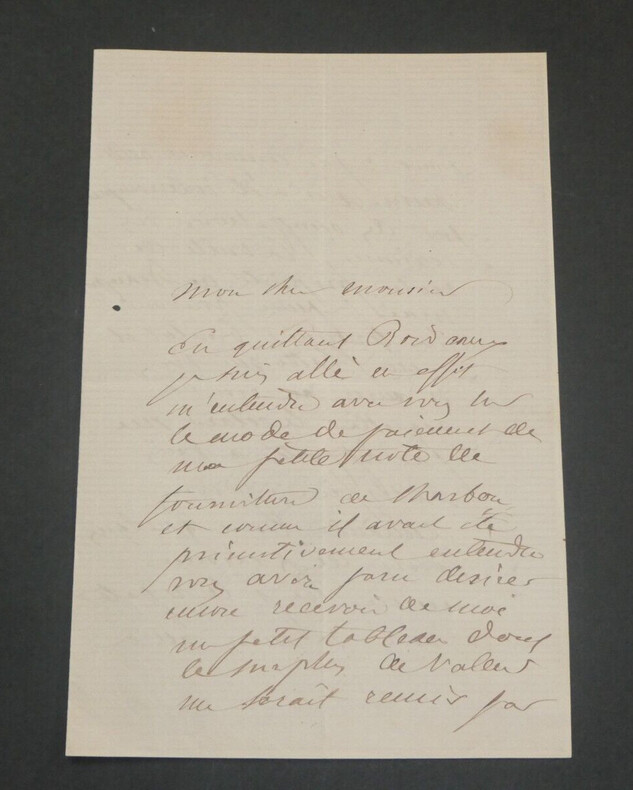 mon cher monsieur
En quittant Bordeaux
je suis allé en effet
m'entendre avec vous sur
le mode de paiement de
ma petite note de
fourniture de charbon
et comme il avait été
primitivement entendu
vous avez paru désirer
encore recevoir de moi
un petit tableau dont
le surplus de valeur
me serait remis par